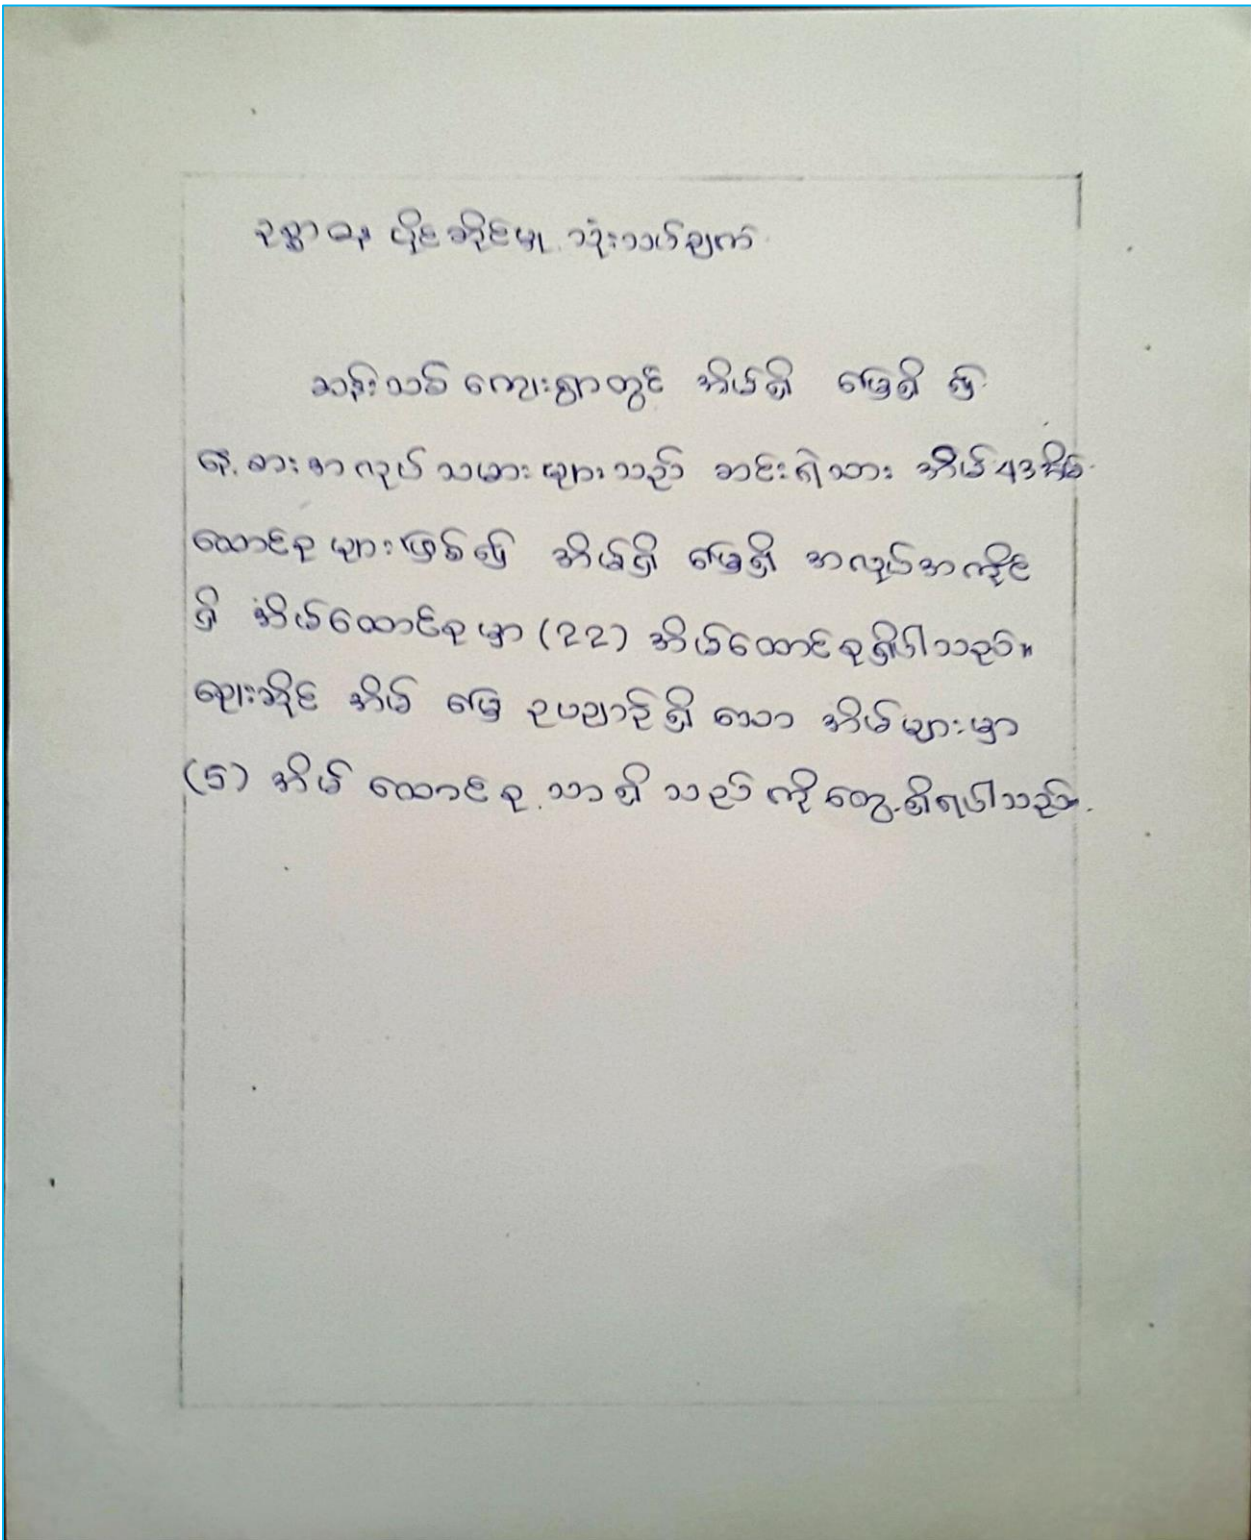 ဥစ္စာဓန ပိုင်ဆိုင်မှု သုံးသပ်ချက်
ဆန်းသစ် ကျေးရွာတွင် အိမ်ရှိ မြေရှိ ၍
နေ့စားအလုပ် သမားများသည် ဆင်းရဲသား အိမ် 43 အိမ်
ထောင်စု များဖြစ်၍ အိမ်ရှိ မြေရှိ အလုပ်အကိုင်
ရှိ အိမ်ထောင်စုမှာ (22) အိမ်ထောင်စုရှိပါသည်။
ဈေးဆိုင် အိမ် မြေ ဥယျာဉ်ရှိ သော အိမ်များမှာ
(5) အိမ် ထောင်စု သာရှိ သည် ကို တွေ့ရှိရပါသည်။